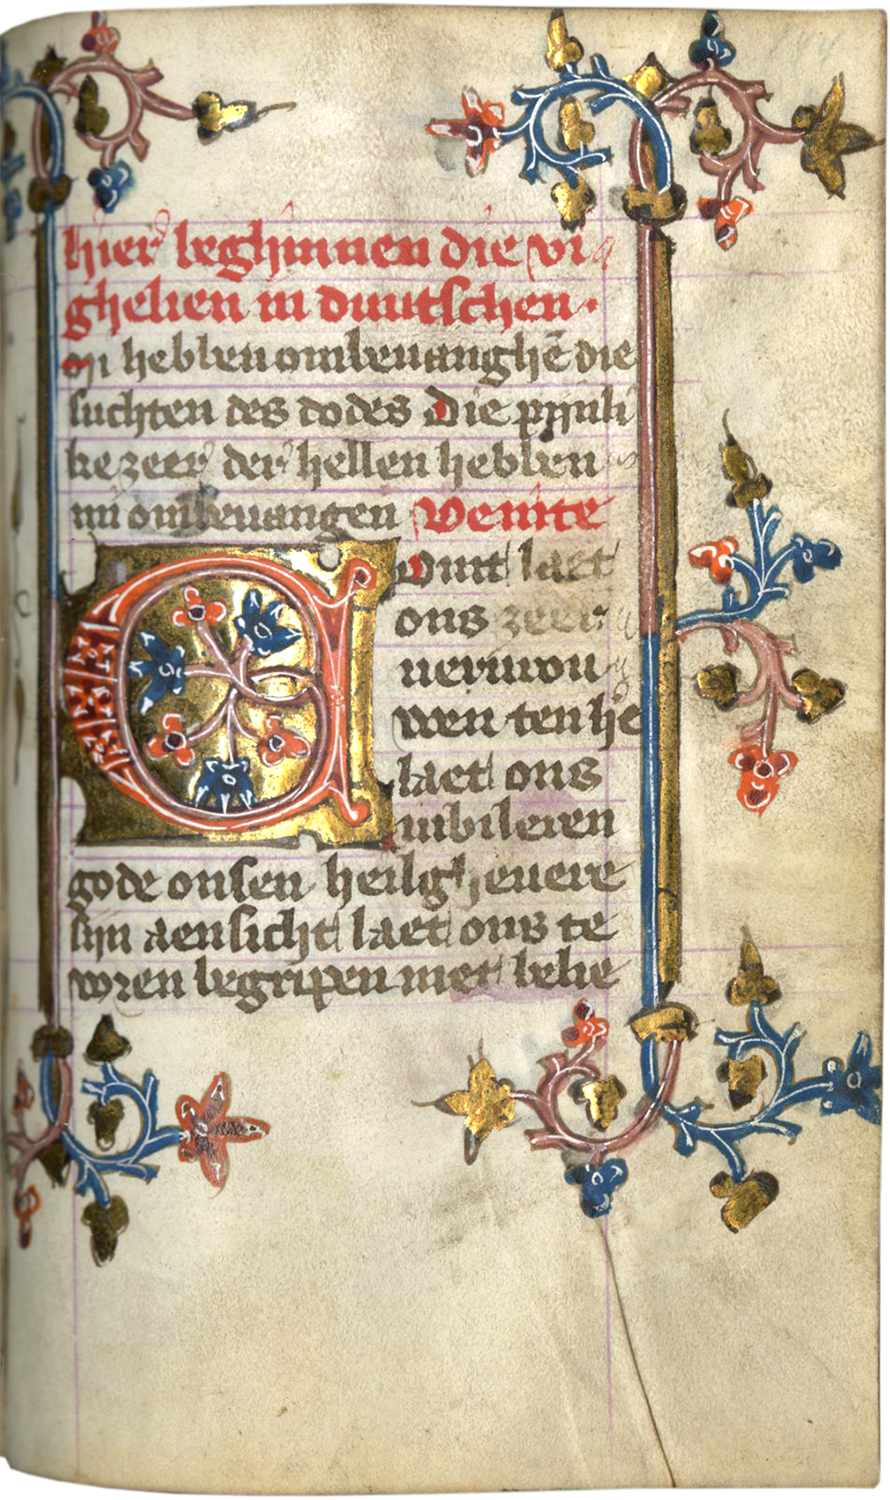 hier beghinnen die vi
ghelien in duutschen.
mi hebben ombeuanghē die
suchten des dodes Die pijnli
ke zeer der hellen hebben
mi ombeuangen Venite
Comt laet
ons zeer
vervrou
wen ten he
laet ons
iubileren
gode onsen heilgheuere
sijn aensicht laet ons te
voren begripen met belie